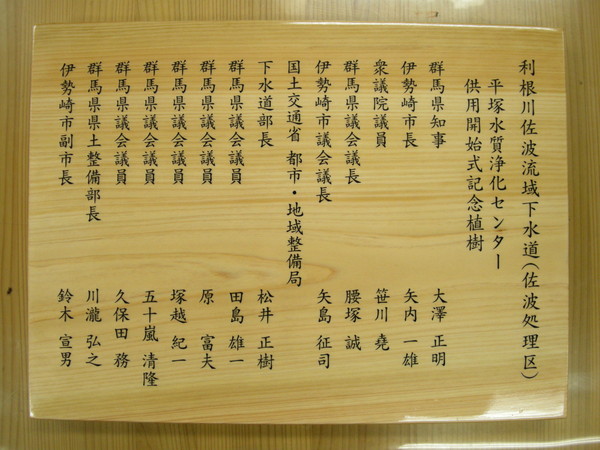 利根川佐波流域下水道(佐波処理区)
平塚水質浄化センター
供用開始式記念植樹
群馬県知事 大澤 正明
伊勢崎市長 矢内 一雄
衆議院議員 笹川 堯
群馬県議会議長 腰塚 誠
伊勢崎市議会議長 矢島 征司
国土交通省 都市・地域整備局
下水道部長 松井 正樹
群馬県議会議員 田島 雄一
群馬県議会議員 原 富夫
群馬県議会議員 塚越 紀一
群馬県議会議員 五十嵐 清隆
群馬県議会議員 久保田 務
群馬県県土整備部長 川瀧 弘之
伊勢崎市副市長 鈴木 宣男